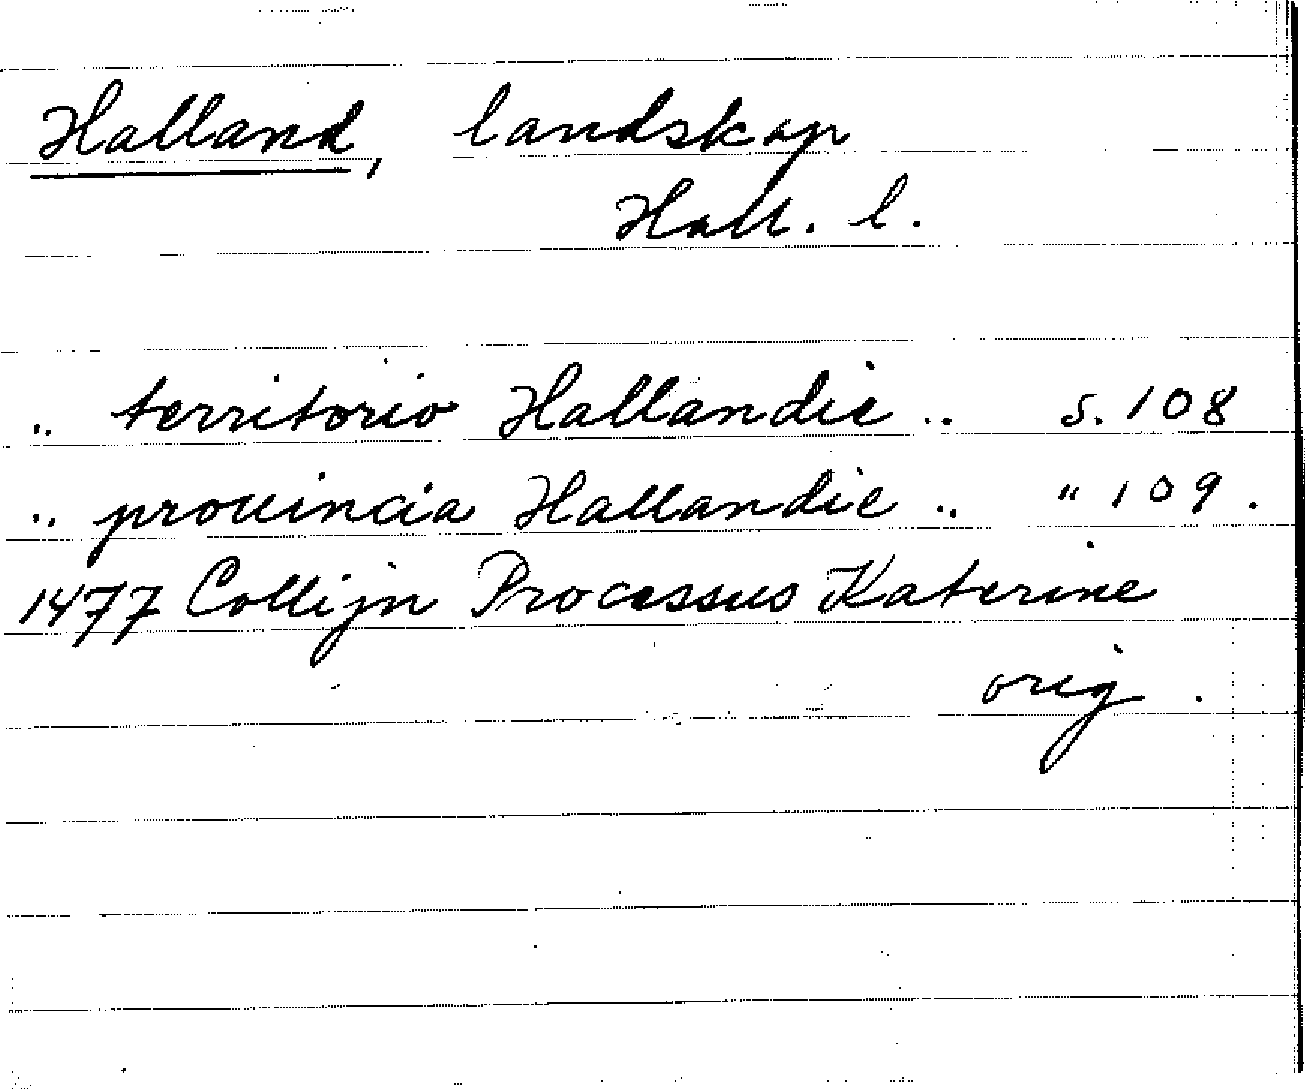 Halland, landskap
Hall. l.
.. territorio Hallandie .. s. 108
.. prouincia Hallandie .. " 109.
1477 Collijn Processus Katerine
orig.